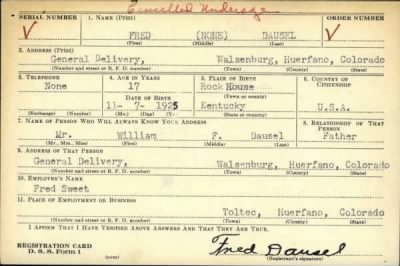 Cancelled Underage
SERIAL NUMBER 1. NAME (Print) ORDER NUMBER
✓ FRED (NONE) DAUSEL ✓
(First) (Middle) (Last)
2. ADDRESS (Print)
General Delivery, Walsenburg, Huerfano, Colorado
(Number and street or R. F. D. number) (Town) (County) (State)
3. TELEPHONE 4. AGE IN YEARS 5. PLACE OF BIRTH 6. COUNTRY OF CITIZENSHIP
None 17 Rock House
DATE OF BIRTH (Town or county)
11- 7- 1925 Kentucky U.S.A.
(Exchange) (Number) (Mo.) (Day) (Yr.) (State or country)
7. NAME OF PERSON WHO WILL ALWAYS KNOW YOUR ADDRESS 8. RELATIONSHIP OF THAT PERSON
Mr. William F. Dausel Father
(Mr., Mrs., Miss) (First) (Middle) (Last)
9. ADDRESS OF THAT PERSON
General Delivery, Walsenburg, Huerfano, Colorado
(Number and street or R. F. D. number) (Town) (County) (State)
10. EMPLOYER'S NAME
Fred Sweet
11. PLACE OF EMPLOYMENT OR BUSINESS
Toltec, Huerfano, Colorado
(Number and street or R. F. D. number) (Town) (County) (State)
I AFFIRM THAT I HAVE VERIFIED ABOVE ANSWERS AND THAT THEY ARE TRUE.
REGISTRATION CARD
D. S. S. Form 1 Fred Dausel
(Registrant's signature)